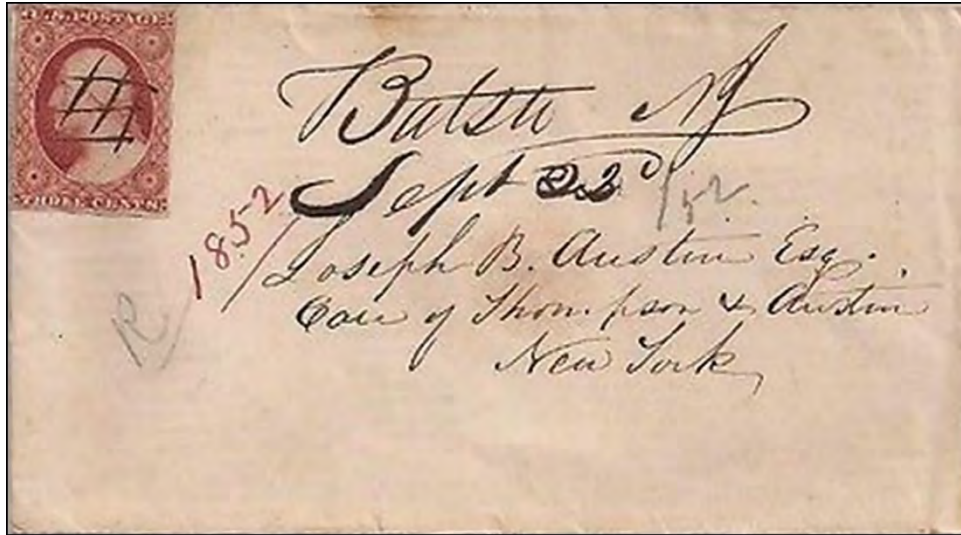 U.S. POSTAGE
THREE CENTS
Batsto NJ
Sept 22d
/52.
1852
Joseph B. Austin Esq.
Care of Thompson & Austin
New York
R